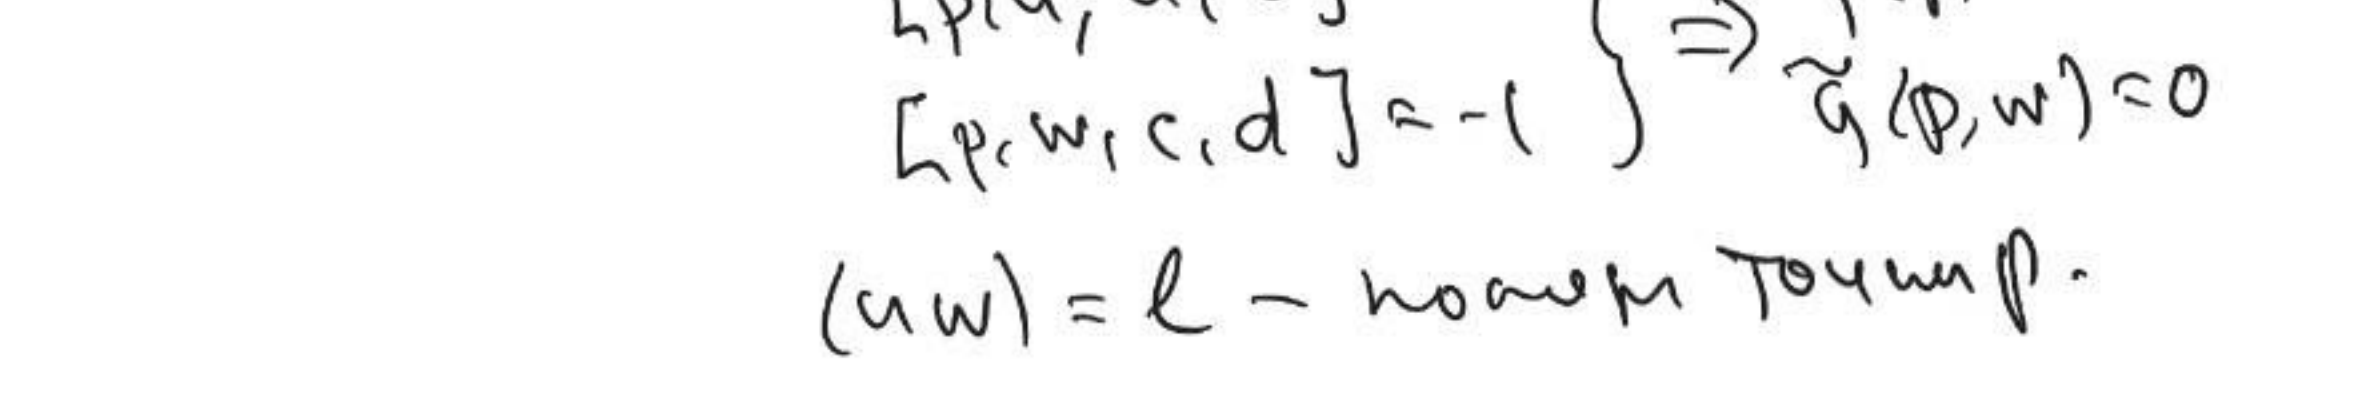 [p, w, c, d] = -1 } ⇒ g̃(p, w) = 0
(uw) = l - поляра точки p.